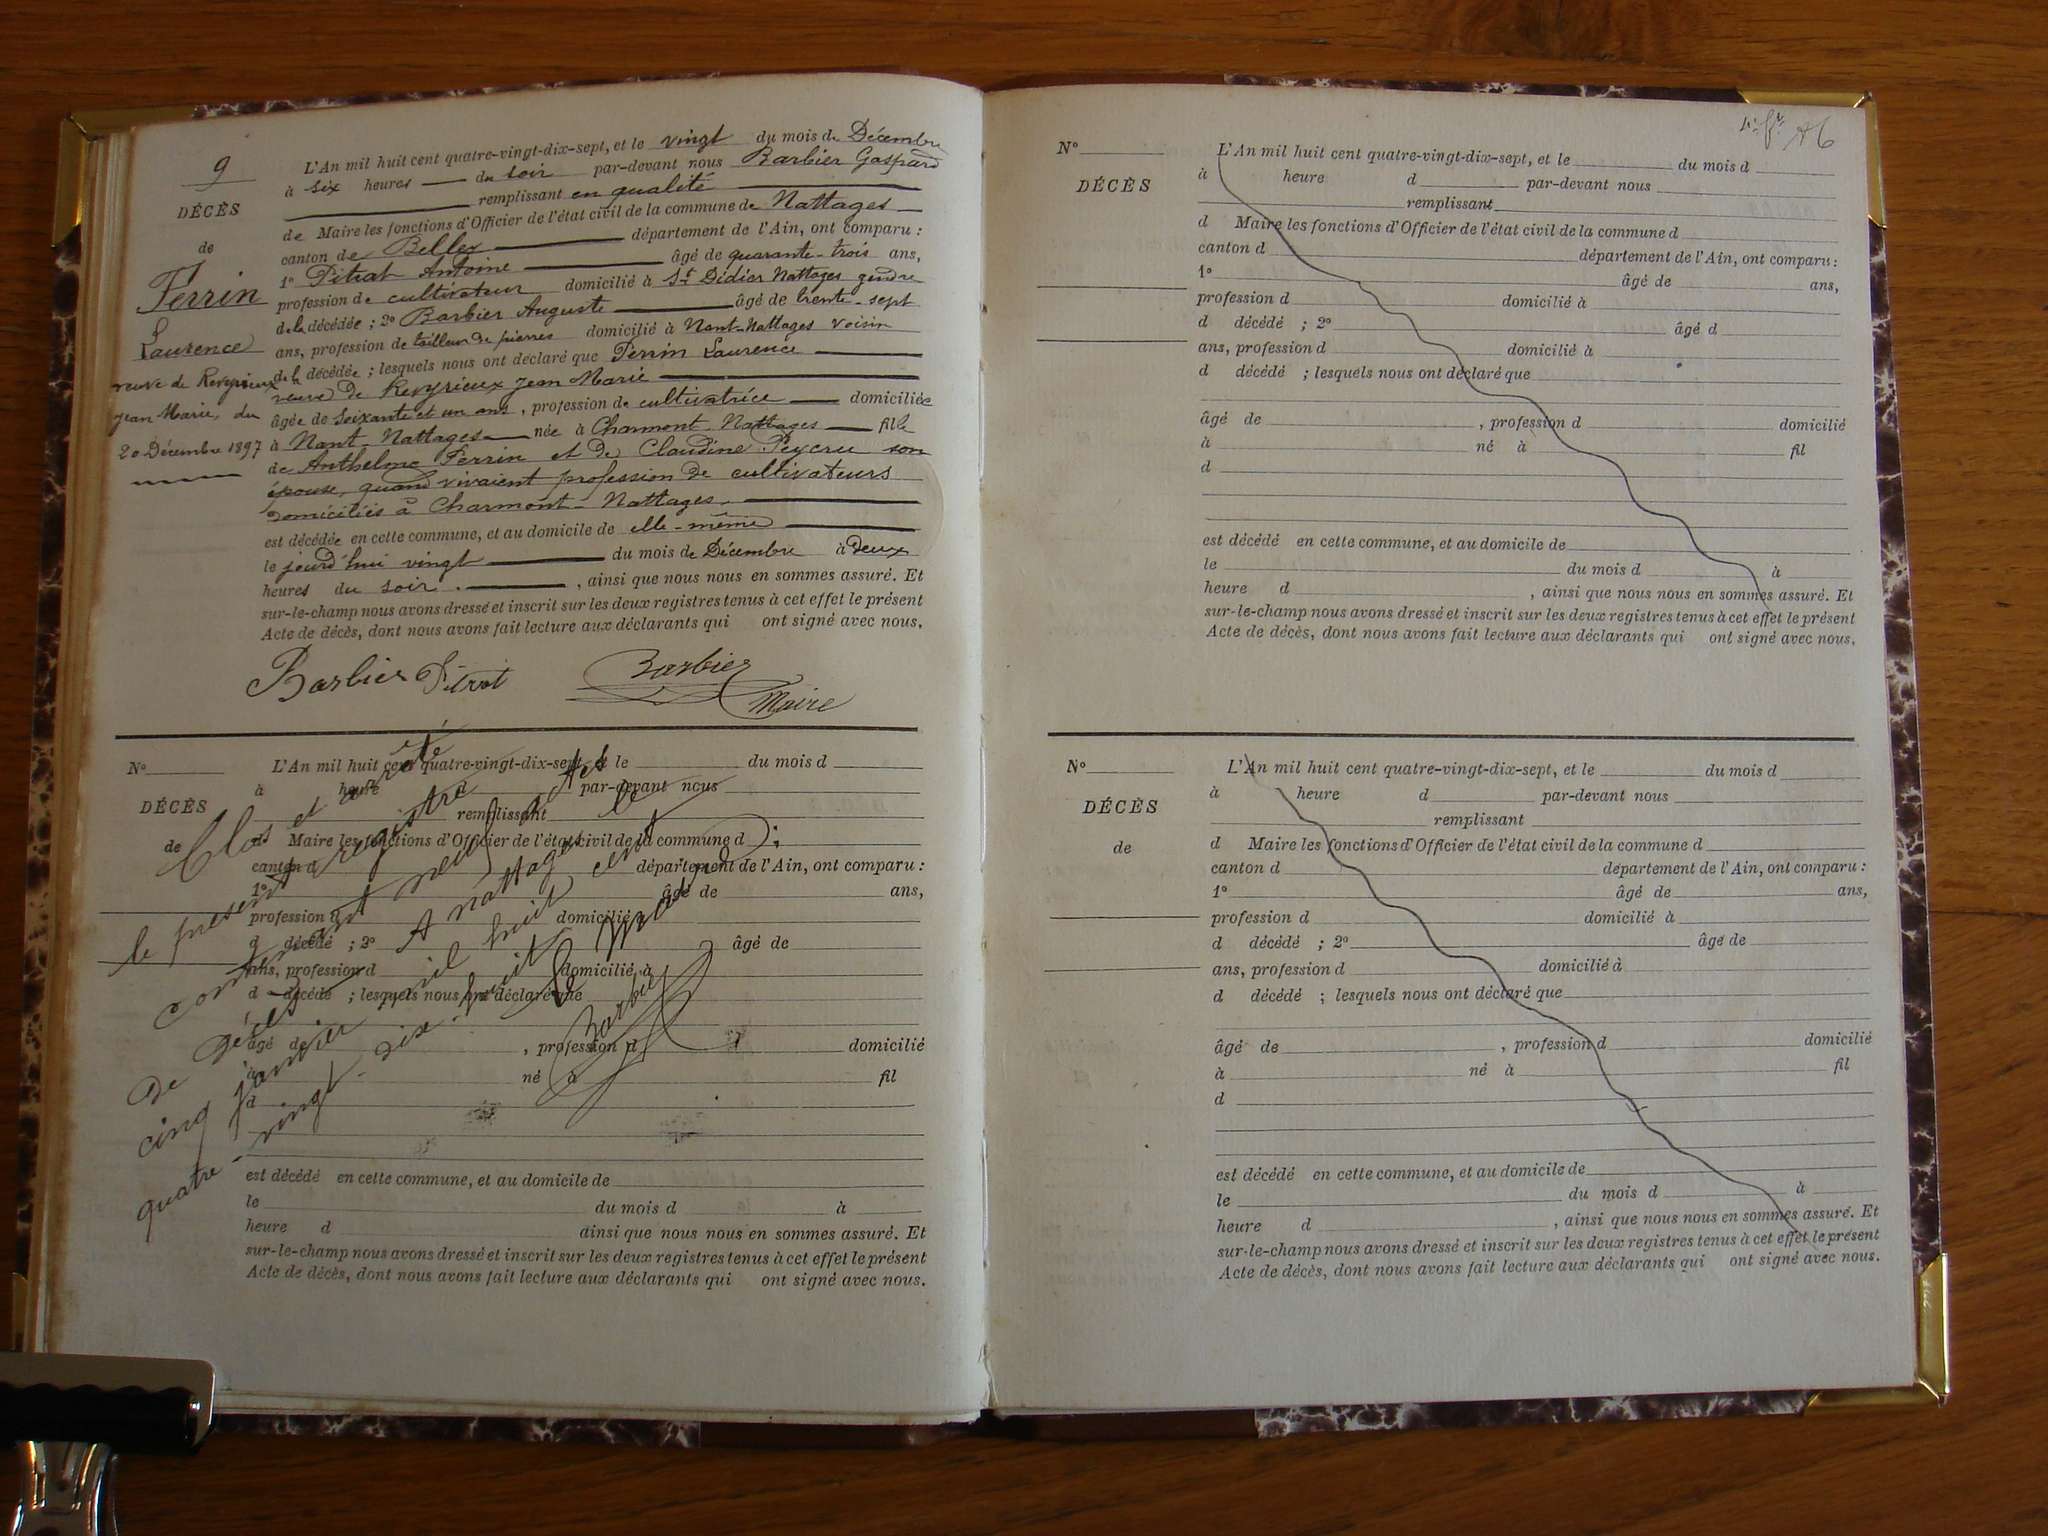 9
DÉCÈS
de
Perrin
Laurence
veuve de Reveyrieux
Jean Marie, du
20 Décembre 1897
L'An mil huit cent quatre-vingt-dix-sept, et le vingt du mois de Décembre
à six heures du soir par-devant nous Barbier Gaspard
remplissant en qualité
de Maire les fonctions d'Officier de l'état civil de la commune de Nattages
canton de Belley département de l'Ain, ont comparu :
1° Pitrat Antoine âgé de quarante-trois ans,
profession de cultivateur domicilié à St Didier Nattages gendre
de la décédée ; 2° Barbier Auguste âgé de trente-sept
ans, profession de tailleur de pierres domicilié à Nant-Nattages voisin
de la décédée ; lesquels nous ont déclaré que Perrin Laurence
veuve de Reveyrieux Jean Marie
âgée de soixante et un ans, profession de cultivatrice domiciliée
à Nant-Nattages née à Charmont-Nattages fille
de Anthelme Perrin et de Claudine Peycru son
épouse, quand vivaient profession de cultivateurs
domiciliés à Charmont-Nattages
est décédée en cette commune, et au domicile de elle-même
le jourd'hui vingt du mois de Décembre à deux
heures du soir , ainsi que nous nous en sommes assuré. Et
sur-le-champ nous avons dressé et inscrit sur les deux registres tenus à cet effet le présent
Acte de décès, dont nous avons fait lecture aux déclarants qui ont signé avec nous.
Barbier Pitrat Barbier
Maire
N°
DÉCÈS
de
L'An mil huit cent quatre-vingt-dix-sept, et le du mois d
à heure d par-devant nous
remplissant
d Maire les fonctions d'Officier de l'état civil de la commune d
canton d département de l'Ain, ont comparu :
1° âgé de ans,
profession d domicilié à
d décédé ; 2° âgé de
ans, profession d domicilié à
d décédé ; lesquels nous ont déclaré que
âgé de , profession d domicilié
à né à fil
d
est décédé en cette commune, et au domicile de
le du mois d à
heure d ainsi que nous nous en sommes assuré. Et
sur-le-champ nous avons dressé et inscrit sur les deux registres tenus à cet effet le présent
Acte de décès, dont nous avons fait lecture aux déclarants qui ont signé avec nous.
Clos et arrêté
le présent registre
contenant neuf actes
de décès A Nattages le
cinq janvier mil huit cent
quatre-vingt-dix-huit
Le Maire
Barbier
N°
DÉCÈS
L'An mil huit cent quatre-vingt-dix-sept, et le du mois d
à heure d par-devant nous
remplissant
d Maire les fonctions d'Officier de l'état civil de la commune d
canton d département de l'Ain, ont comparu :
1° âgé de ans,
profession d domicilié à
d décédé ; 2° âgé d
ans, profession d domicilié à
d décédé ; lesquels nous ont déclaré que
âgé de , profession d domicilié
à né à fil
d
est décédé en cette commune, et au domicile de
le du mois d à
heure d , ainsi que nous nous en sommes assuré. Et
sur-le-champ nous avons dressé et inscrit sur les deux registres tenus à cet effet le présent
Acte de décès, dont nous avons fait lecture aux déclarants qui ont signé avec nous.
N°
DÉCÈS
de
L'An mil huit cent quatre-vingt-dix-sept, et le du mois d
à heure d par-devant nous
remplissant
d Maire les fonctions d'Officier de l'état civil de la commune d
canton d département de l'Ain, ont comparu :
1° âgé de ans,
profession d domicilié à
d décédé ; 2° âgé de
ans, profession d domicilié à
d décédé ; lesquels nous ont déclaré que
âgé de , profession d domicilié
à né à fil
d
est décédé en cette commune, et au domicile de
le du mois d à
heure d , ainsi que nous nous en sommes assuré. Et
sur-le-champ nous avons dressé et inscrit sur les deux registres tenus à cet effet le présent
Acte de décès, dont nous avons fait lecture aux déclarants qui ont signé avec nous.